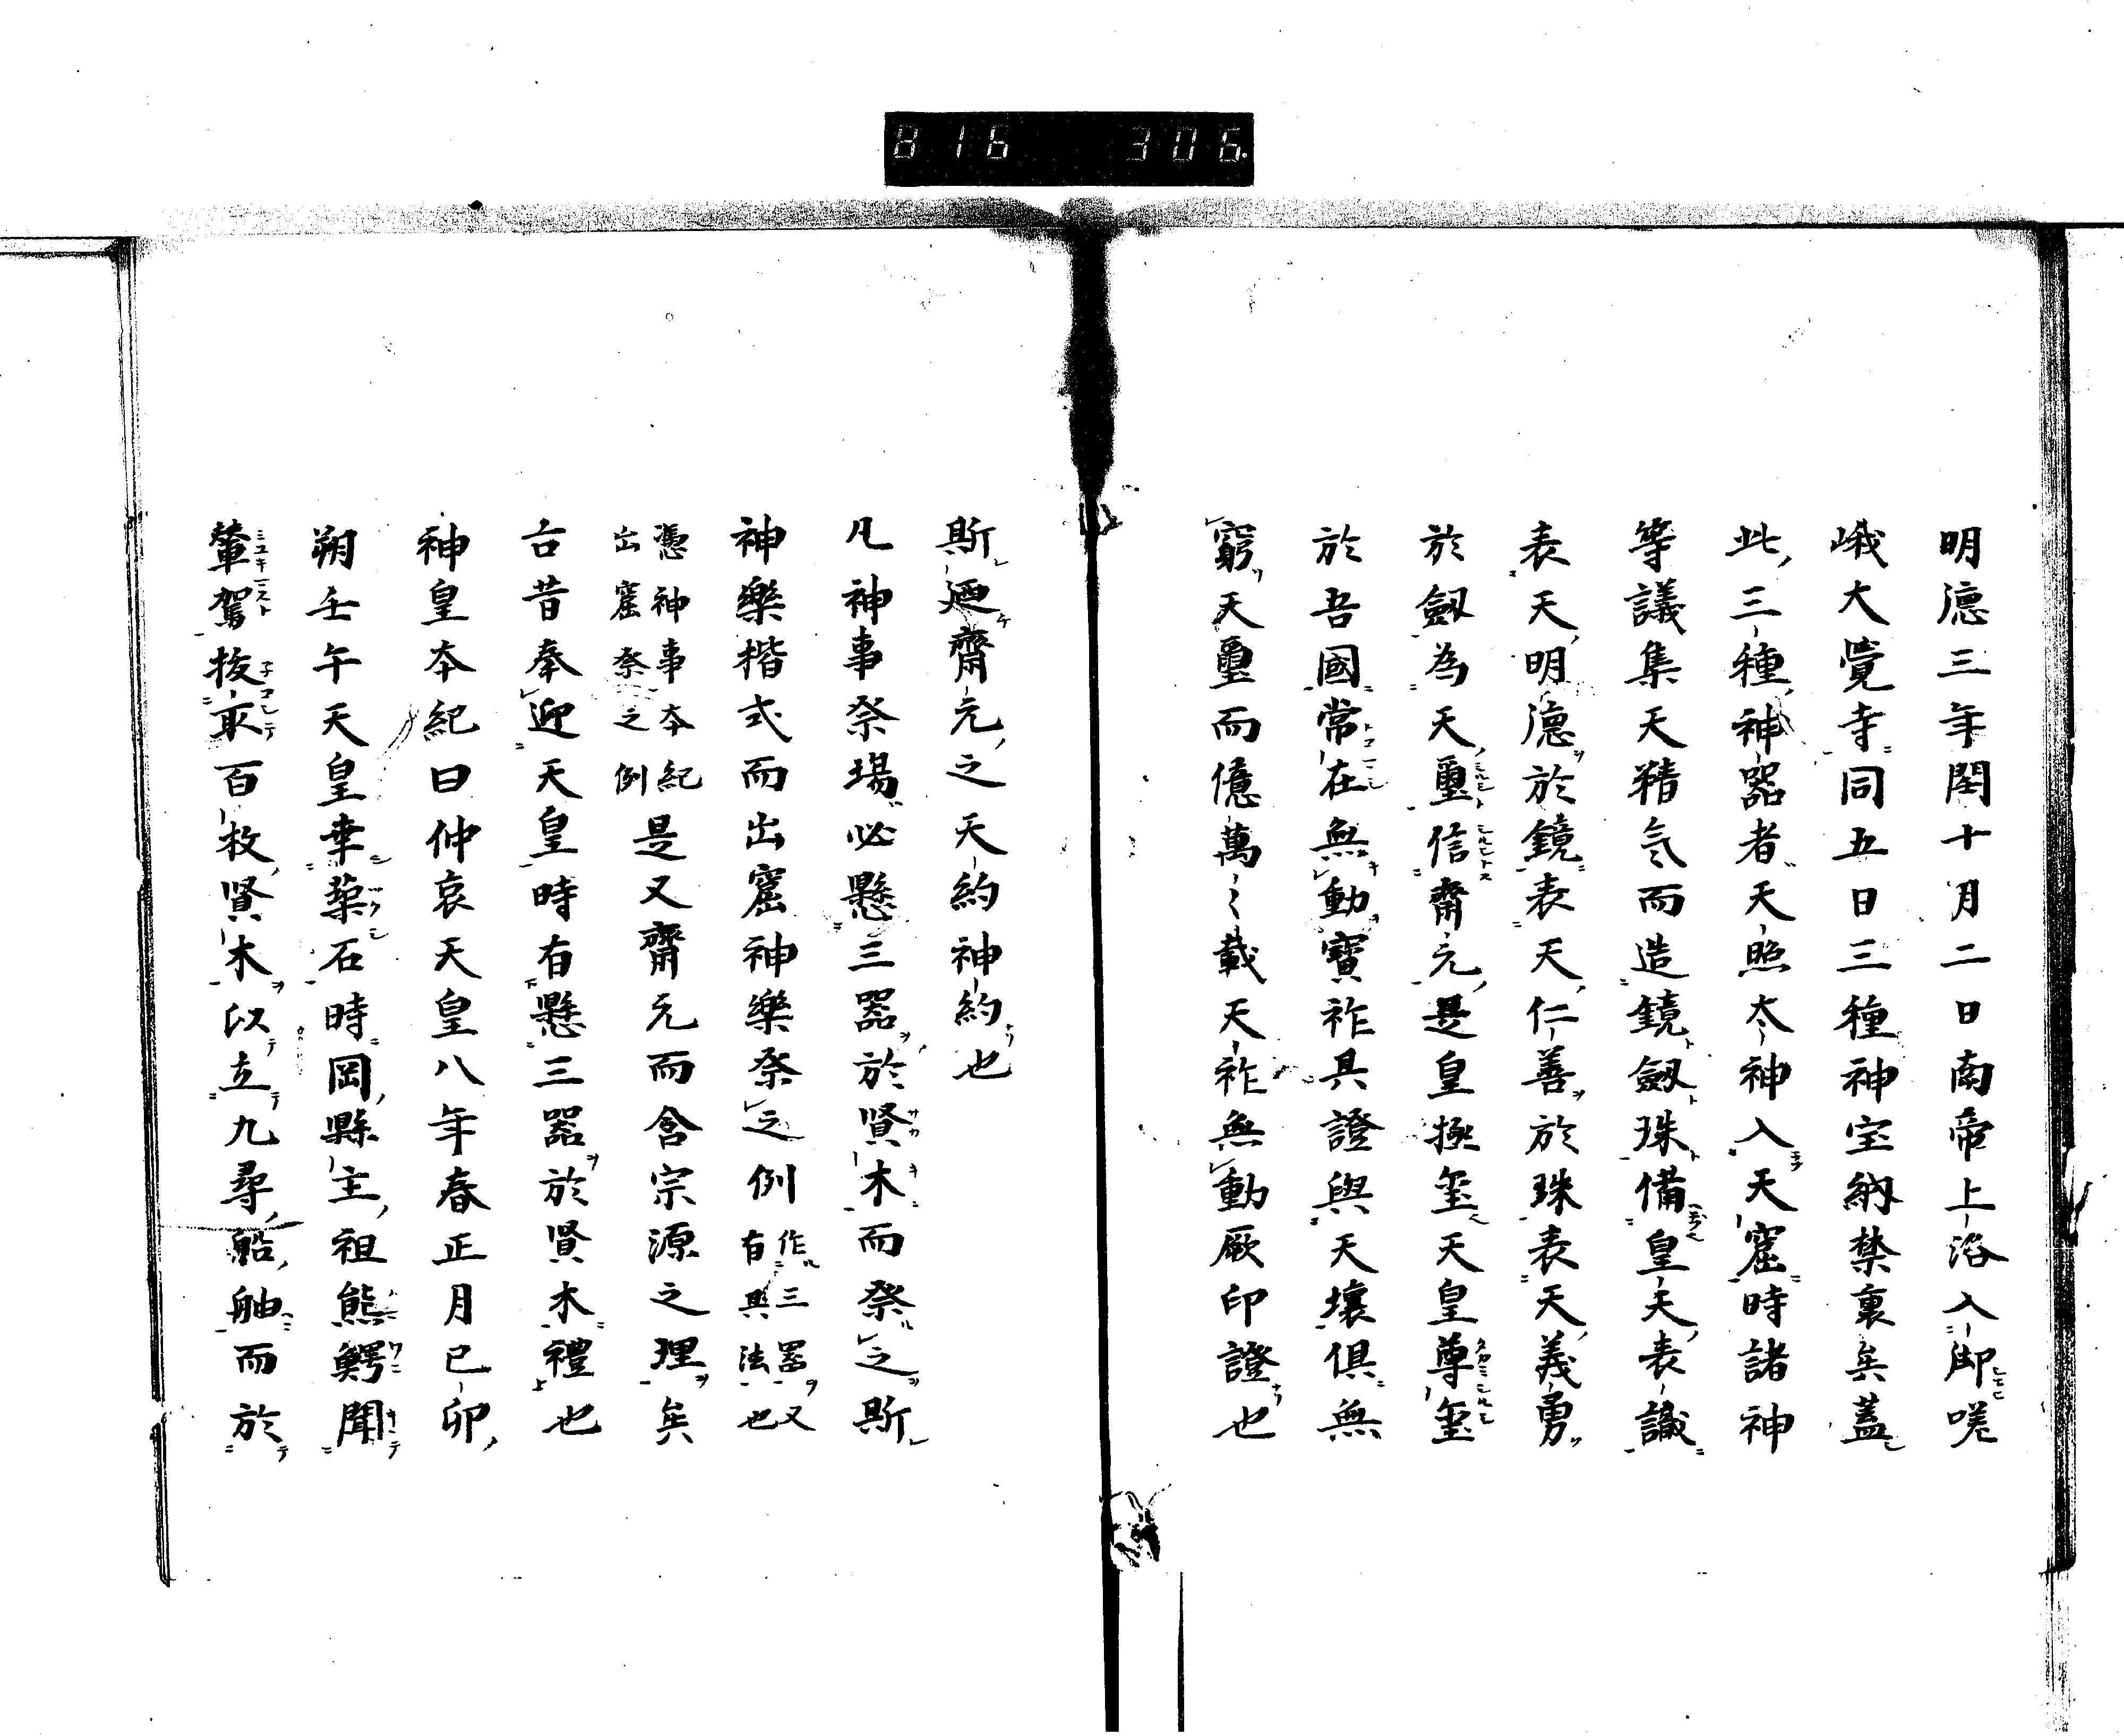 816 306.
明德三年閏十月二日南帝上洛入御嵯
峨大覺寺同五日三種神宝納禁裏矣蓋
此三種神器者天照太神入天窟時諸神
等議集天精氣而造鏡劔珠備皇天表識
表天明德於鏡表天仁善於珠表天義勇
於劔為天璽信齋元是皇極璽天皇尊璽
於吾國常在無動寶祚具證與天壤俱無
窮天璽而億萬〻載天祚無動厥印證也
斯廼齋元之天約神約也
凡神事祭場必懸三器於賢木而祭之斯
神樂楷式而出窟神樂祭之例作三器又有具法也
憑神事本紀出窟祭之例是又齋元而含宗源之理矣
古昔奉迎天皇時有懸三器於賢木禮也
神皇本紀曰仲哀天皇八年春正月已卯
朔壬午天皇幸築石時岡縣主祖熊鰐聞
輦駕拔取百枚賢木以立九尋船舳而於